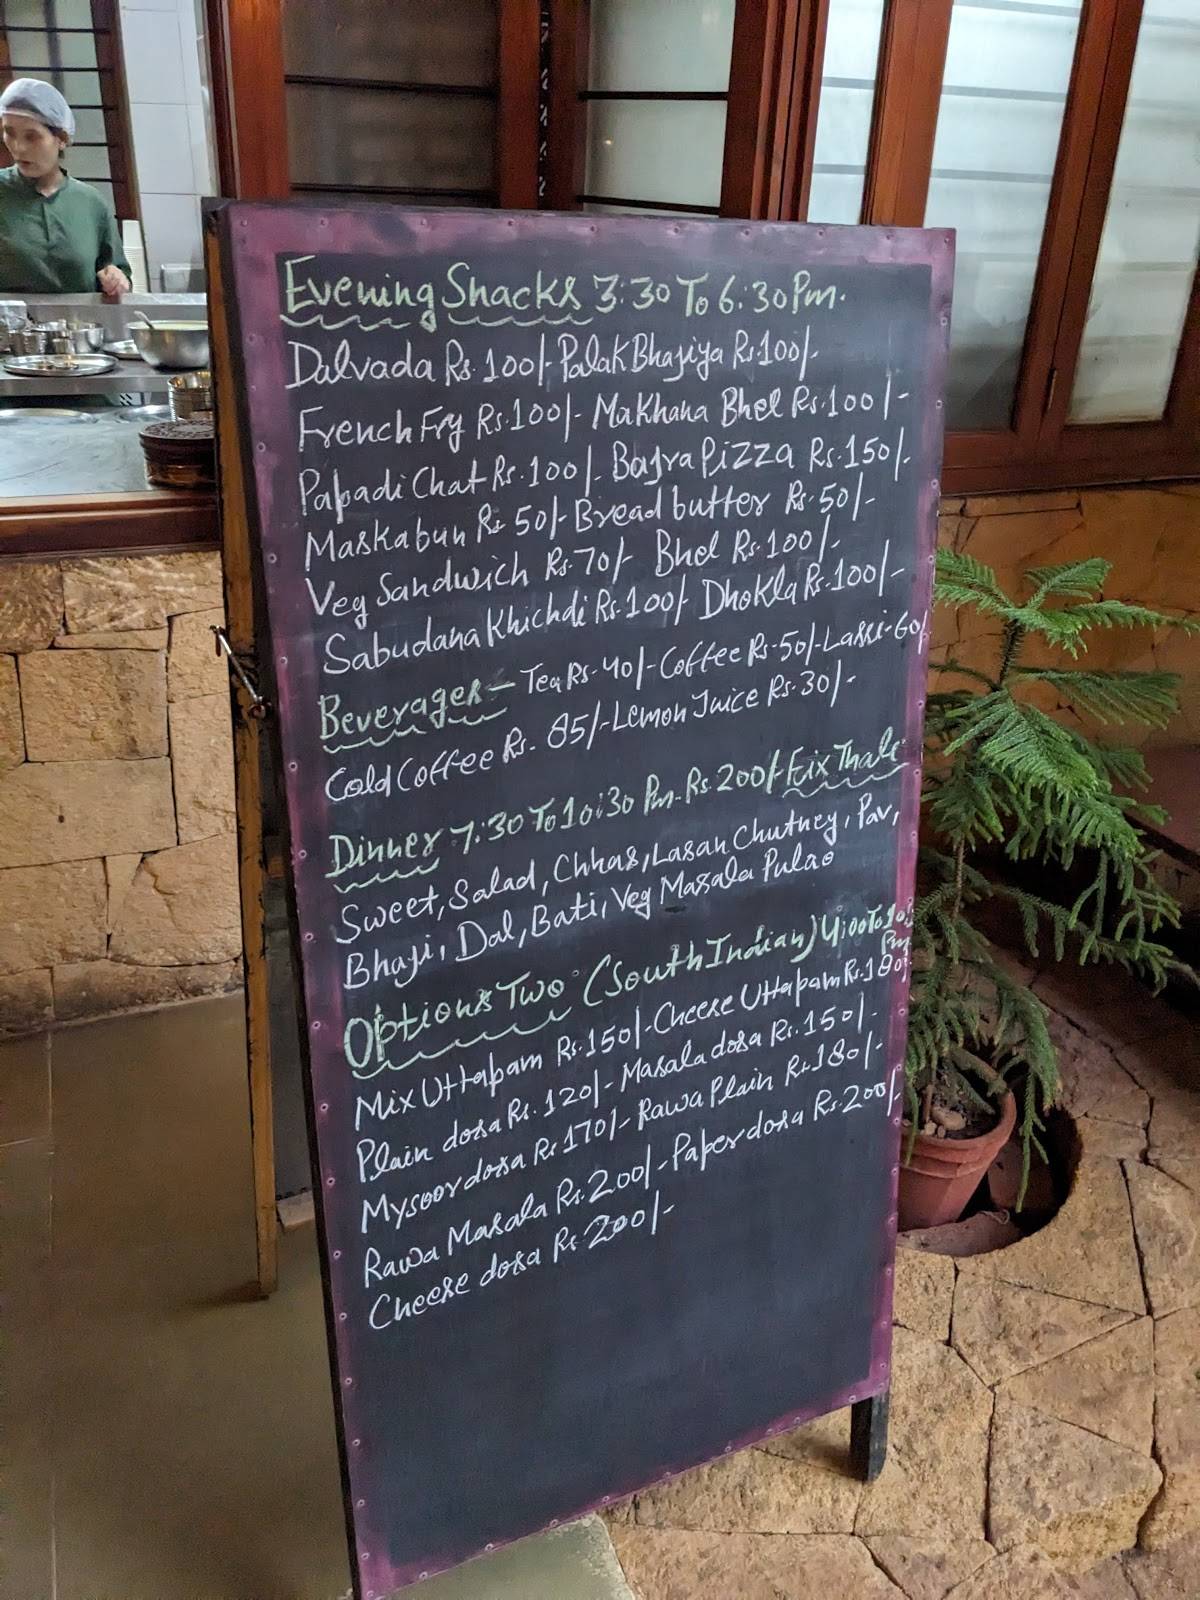 Evening Snacks 3:30 To 6:30 Pm.
Dalvada Rs. 100/- Palak Bhajiya Rs.100/-
French Fry Rs.100/- Makhana Bhel Rs.100/-
Papadi Chat Rs.100/- Bajra Pizza Rs.150/-
Maskabun Rs 50/- Bread butter Rs.50/-
Veg Sandwich Rs.70/- Bhel Rs.100/-
Sabudana Khichdi Rs.100/- Dhokla Rs.100/-
Beverages - Tea Rs-40/- Coffee Rs-50/- Lassi-60/
Cold Coffee Rs. 85/- Lemon Juice Rs.30/-
Dinner 7:30 To 10:30 Pm-Rs.200/- Fix Thali
Sweet, Salad, Chhas, Lasan Chutney, Pav,
Bhaji, Dal, Bati, Veg Masala Pulao
Options Two (South Indian) 4:00 To 10:
Pm
Mix Uttapam Rs.150/- Cheese Uttapam Rs.180/-
Plain dosa Rs.120/- Masala dosa Rs.150/-
Mysoor dosa Rs 170/- Rawa Plain Rs.180/-
Rawa Masala Rs.200/- Paper dosa Rs.200/-
Cheese dosa Rs.200/-